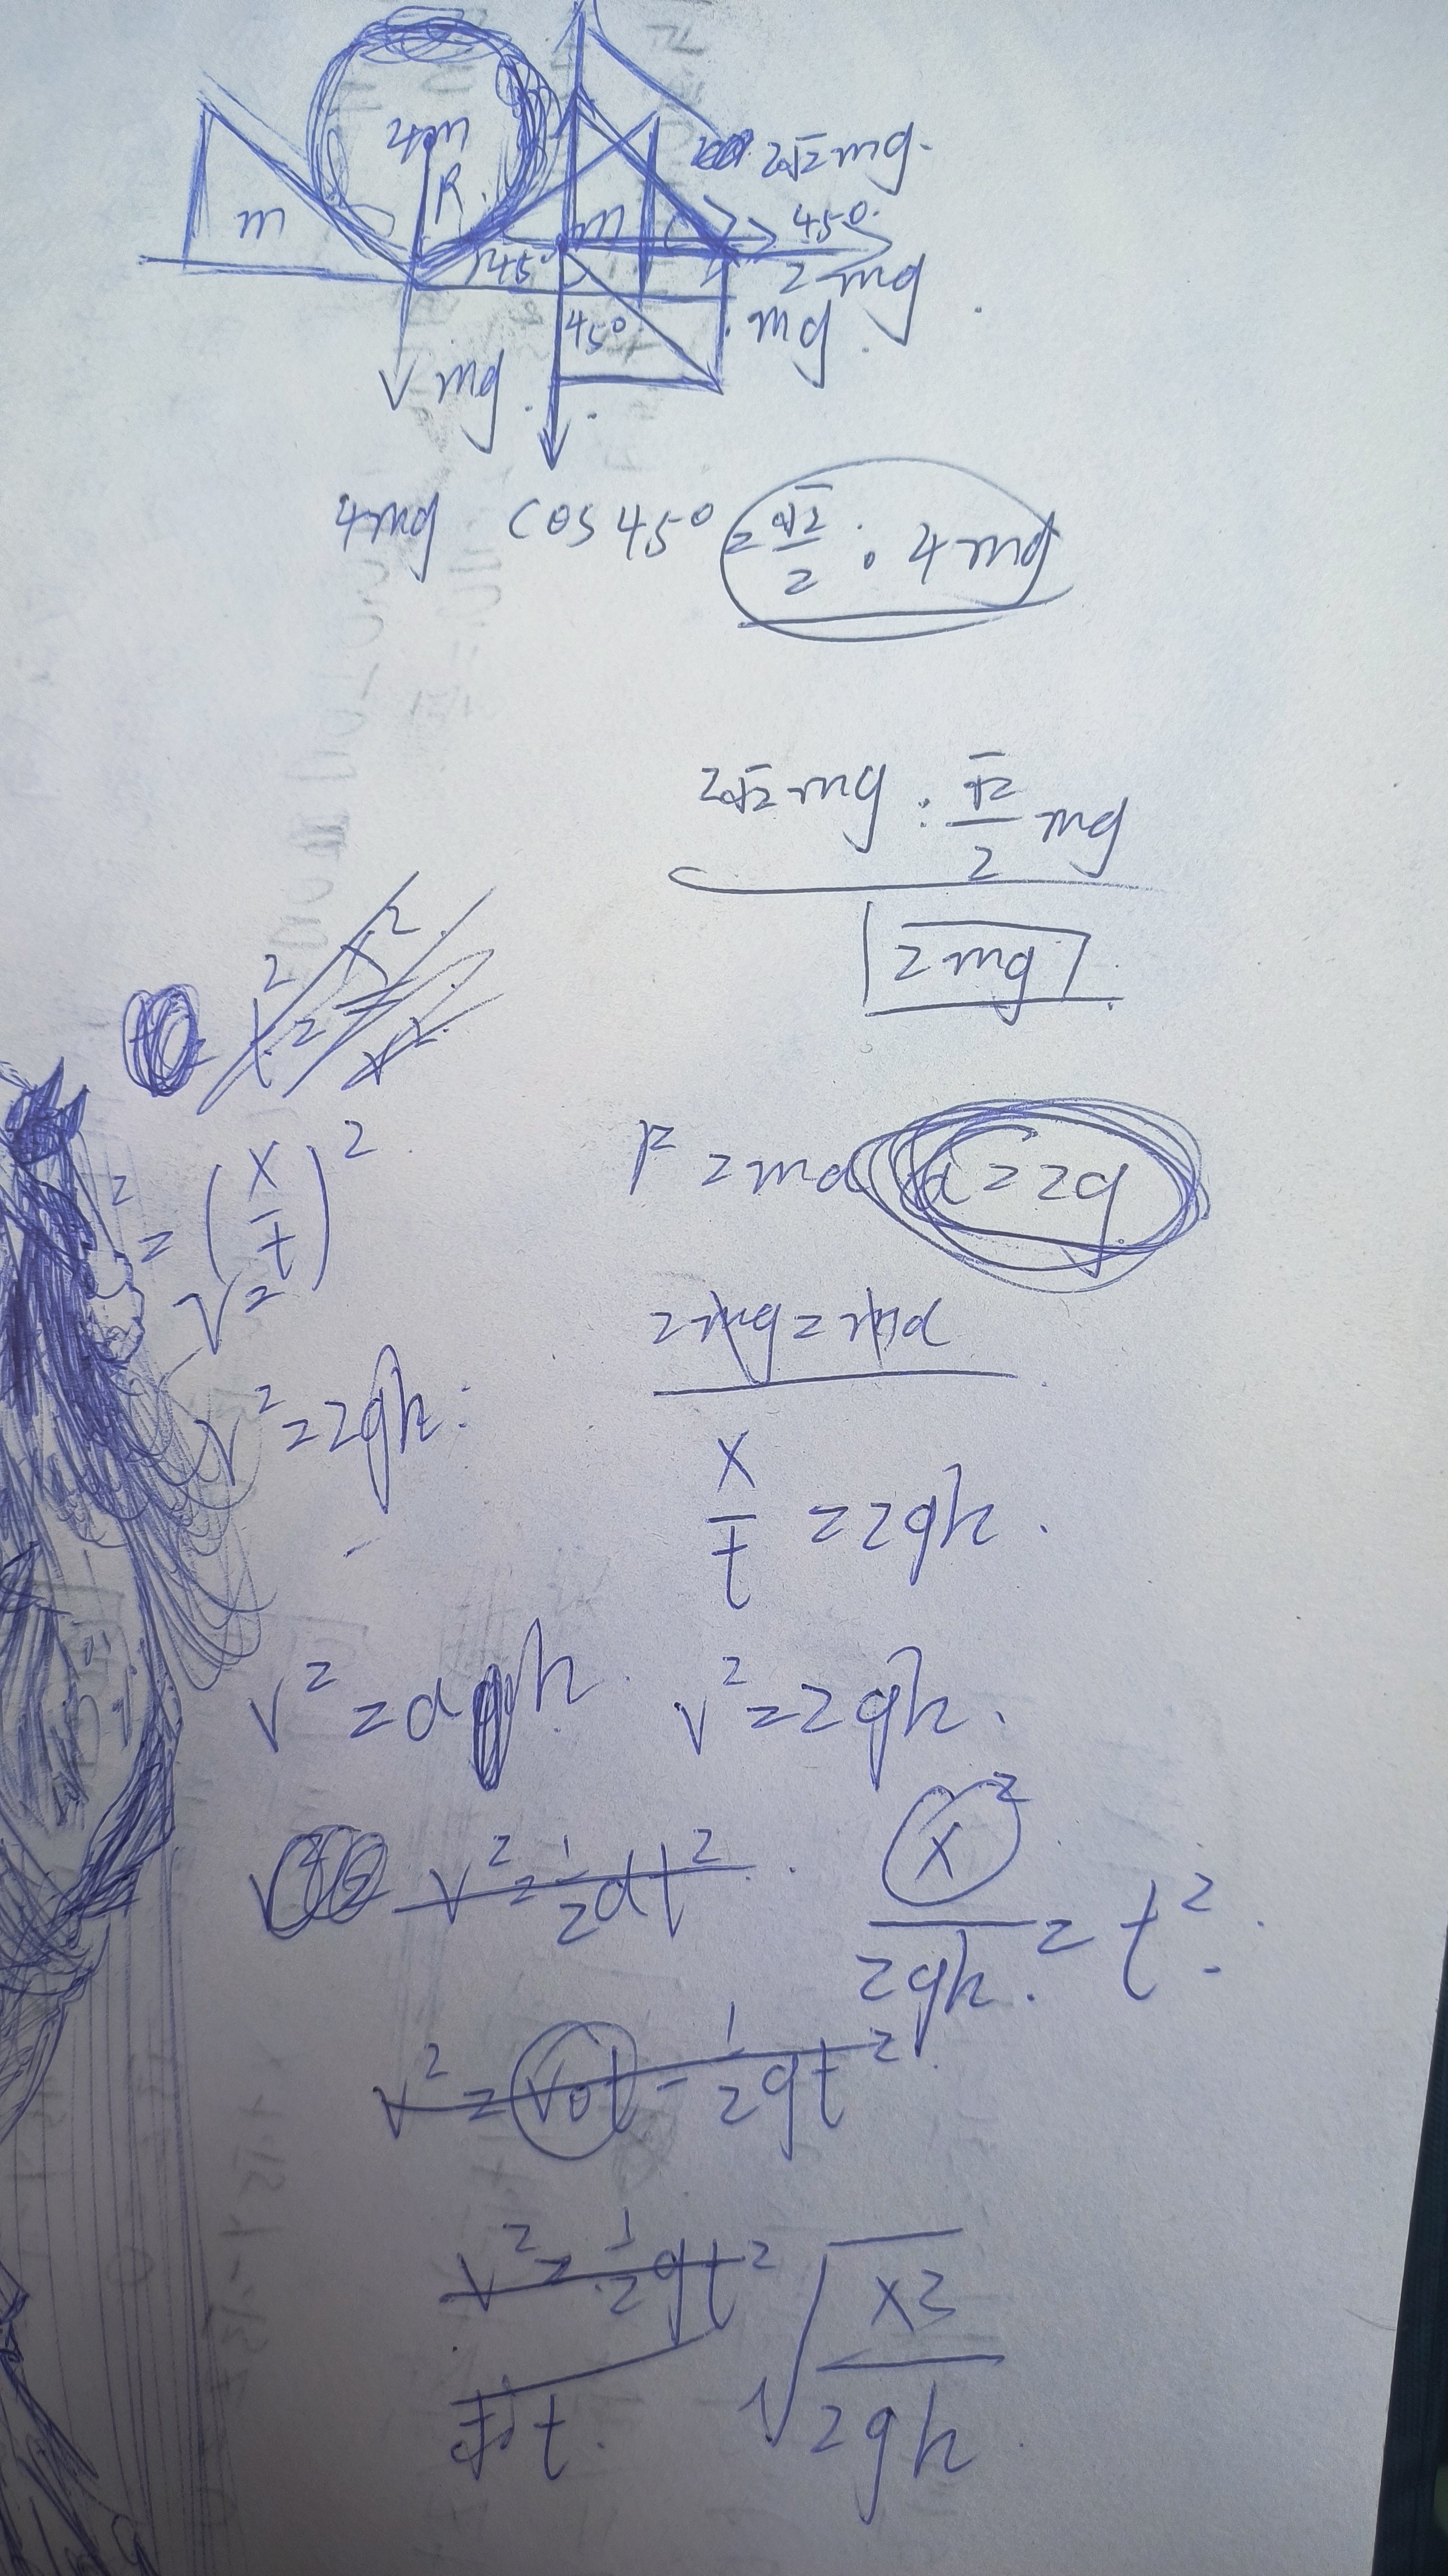 4m
R.
m
m
2√2 mg.
45°
45°.
2 mg
45°
mg
mg.
4mg cos 45° = √2/2 · 4mg
2√2 mg · √2/2 mg
2mg
F = ma a = 2g
² = (x/t)²
v =
2mg = ma
v² = 2gh.
x/t = 2gh.
v² = a h. v² = 2gh.
v² = 1/2 at²
x²/2gh. = t².
v² = v₀t - 1/2 gt²
v² = 1/2 gt²
√x3/2gh
t.